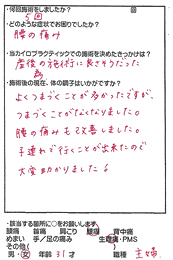 ・何回施術をしましたか?　　　回
5回
・どのような症状でお困りでしたか?
腰の痛み
・当カイロプラクティックでの施術を決めたきっかけは?
産後の施術に良さそうだった
為
・施術後の現在、体の調子はいかがですか?
よくつまづくことが多かったですが、
つまづくことがなくなりました。
腰の痛みも改善しました。
子連れで行くことが出来たので
大変助かりました
・該当する箇所に○をお願いします。
頭痛　首痛　肩こり　腰痛　背中痛
めまい　手/足の痛み　生理痛・PMS
その他(　　　)
男・女　年齢 31才　職種 主婦